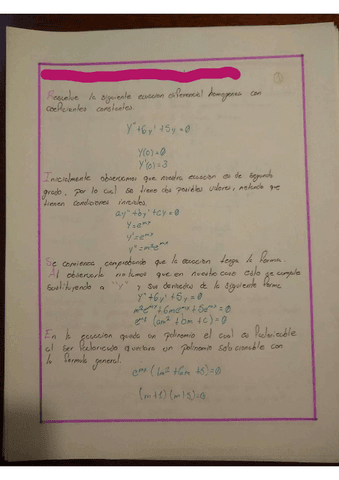 Resuelve la siguiente ecuacion diferencial homogenea con
coeficientes constantes.
y''+6y'+5y=0
y(0)=0
y'(0)=3
Inicialmente observemos que nuestra ecuacion es de segundo
grado, por lo cual se tiene dos posibles valores, notando que
tienen condiciones iniciales.
ay''+by'+cy=0
y=e^mx
y'=e^mx
y''=m²e^mx
Se comienza comprobando que la ecuacion tenga la forma.
Al observarla notamos que en nuestro caso esto se cumple
sustituyendo a "y" y sus derivadas de la siguiente forma
y''+6y'+5y=0
m²e^mx+6me^mx+5e^mx=0
e^mx (am²+bm+c)=0
En la ecuacion queda un polinomio el cual es factorizable
al ser factorizado quedara un polinomio solucionable con
la formula general.
e^mx (m²+6m+5)=0
(m+1)(m+5)=0